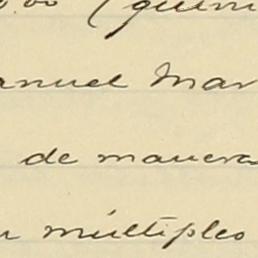 00 (quin
anuel Mar
de manera
múltiples